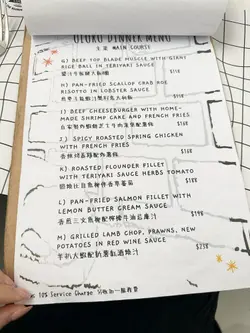 OTORU DINNER MENU
主菜 MAIN COURSE
G) BEEF TOP BLADE MUSCLE WITH GIANT
RICE BALL IN TERIYAKI SAUCE
$118
H) PAN-FRIED SCALLOP CRAB ROE
RISOTTO IN LOBSTER SAUCE
$168
I) BEEF CHEESEBURGER WITH HOME-
MADE SHRIMP CAKE AND FRENCH FRIES
$138
J) SPICY ROASTED SPRING CHICKEN
WITH FRENCH FRIES
香辣烤春雞配炸薯條
$188
K) ROASTED FLOUNDER FILLET
WITH TERIYAKI SAUCE HERBS TOMATO
$188
L) PAN-FRIED SALMON FILLET WITH
LEMON BUTTER CREAM SAUCE
香煎三文魚柳配檸檬牛油忌廉汁
$198
M) GRILLED LAMB CHOP, PRAWNS, NEW
POTATOES IN RED WINE SAUCE
$238
10% Service Charge 另收加一服務費